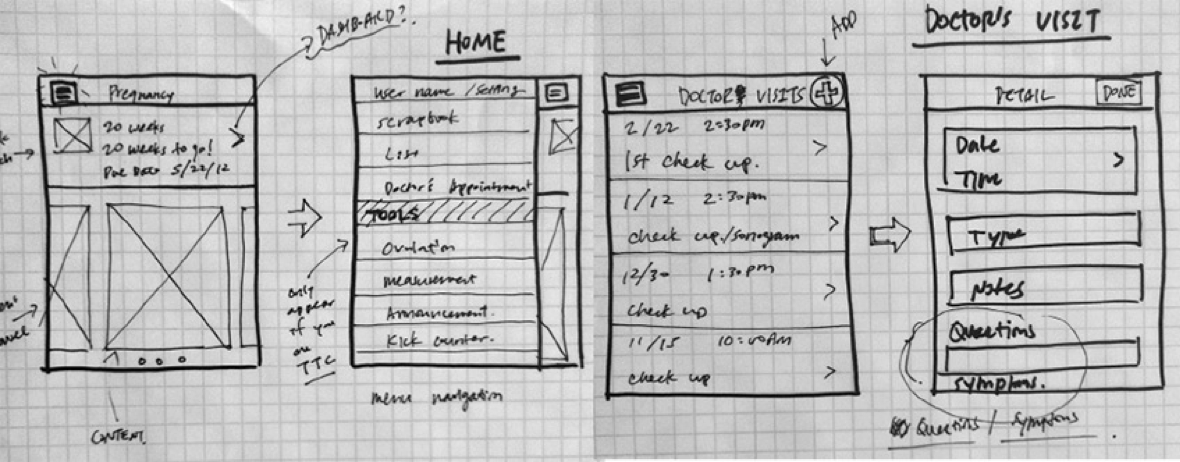 DASHBOARD?
HOME
Pregnancy
20 weeks
20 weeks to go!
Due Date 5/22/12
CONTENT
user name / setting
scrapbook
List
Doctor's Appointment
TOOLS
Ovulation
measurement
Announcement.
Kick counter.
only
appear
if you
are
TTC
menu navigation
ADD
DOCTOR'S VISIT
DOCTOR'S VISITS
2/22 2:30pm
1st check up.
1/12 2:30pm
check up/sonogram
12/30 1:30pm
check up
11/15 10:00AM
check up
DETAIL
DONE
Date
Time
Type
Notes
Questions
symptoms.
Questions / Symptoms